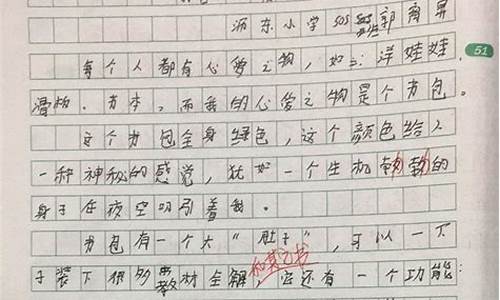 沥东小学505班郭育昇
51
每个人都有心爱之物，如：洋娃娃、
滑板、书本，而我的心爱之物是个书包。
这个书包全身绿色，这个颜色给人
一种神秘的感觉，犹如一个生机勃勃的
身子在夜空吸引着我。
书包有一个大“肚子”，可以一下
子装下很多教材全解和其它书，它还有一个功能